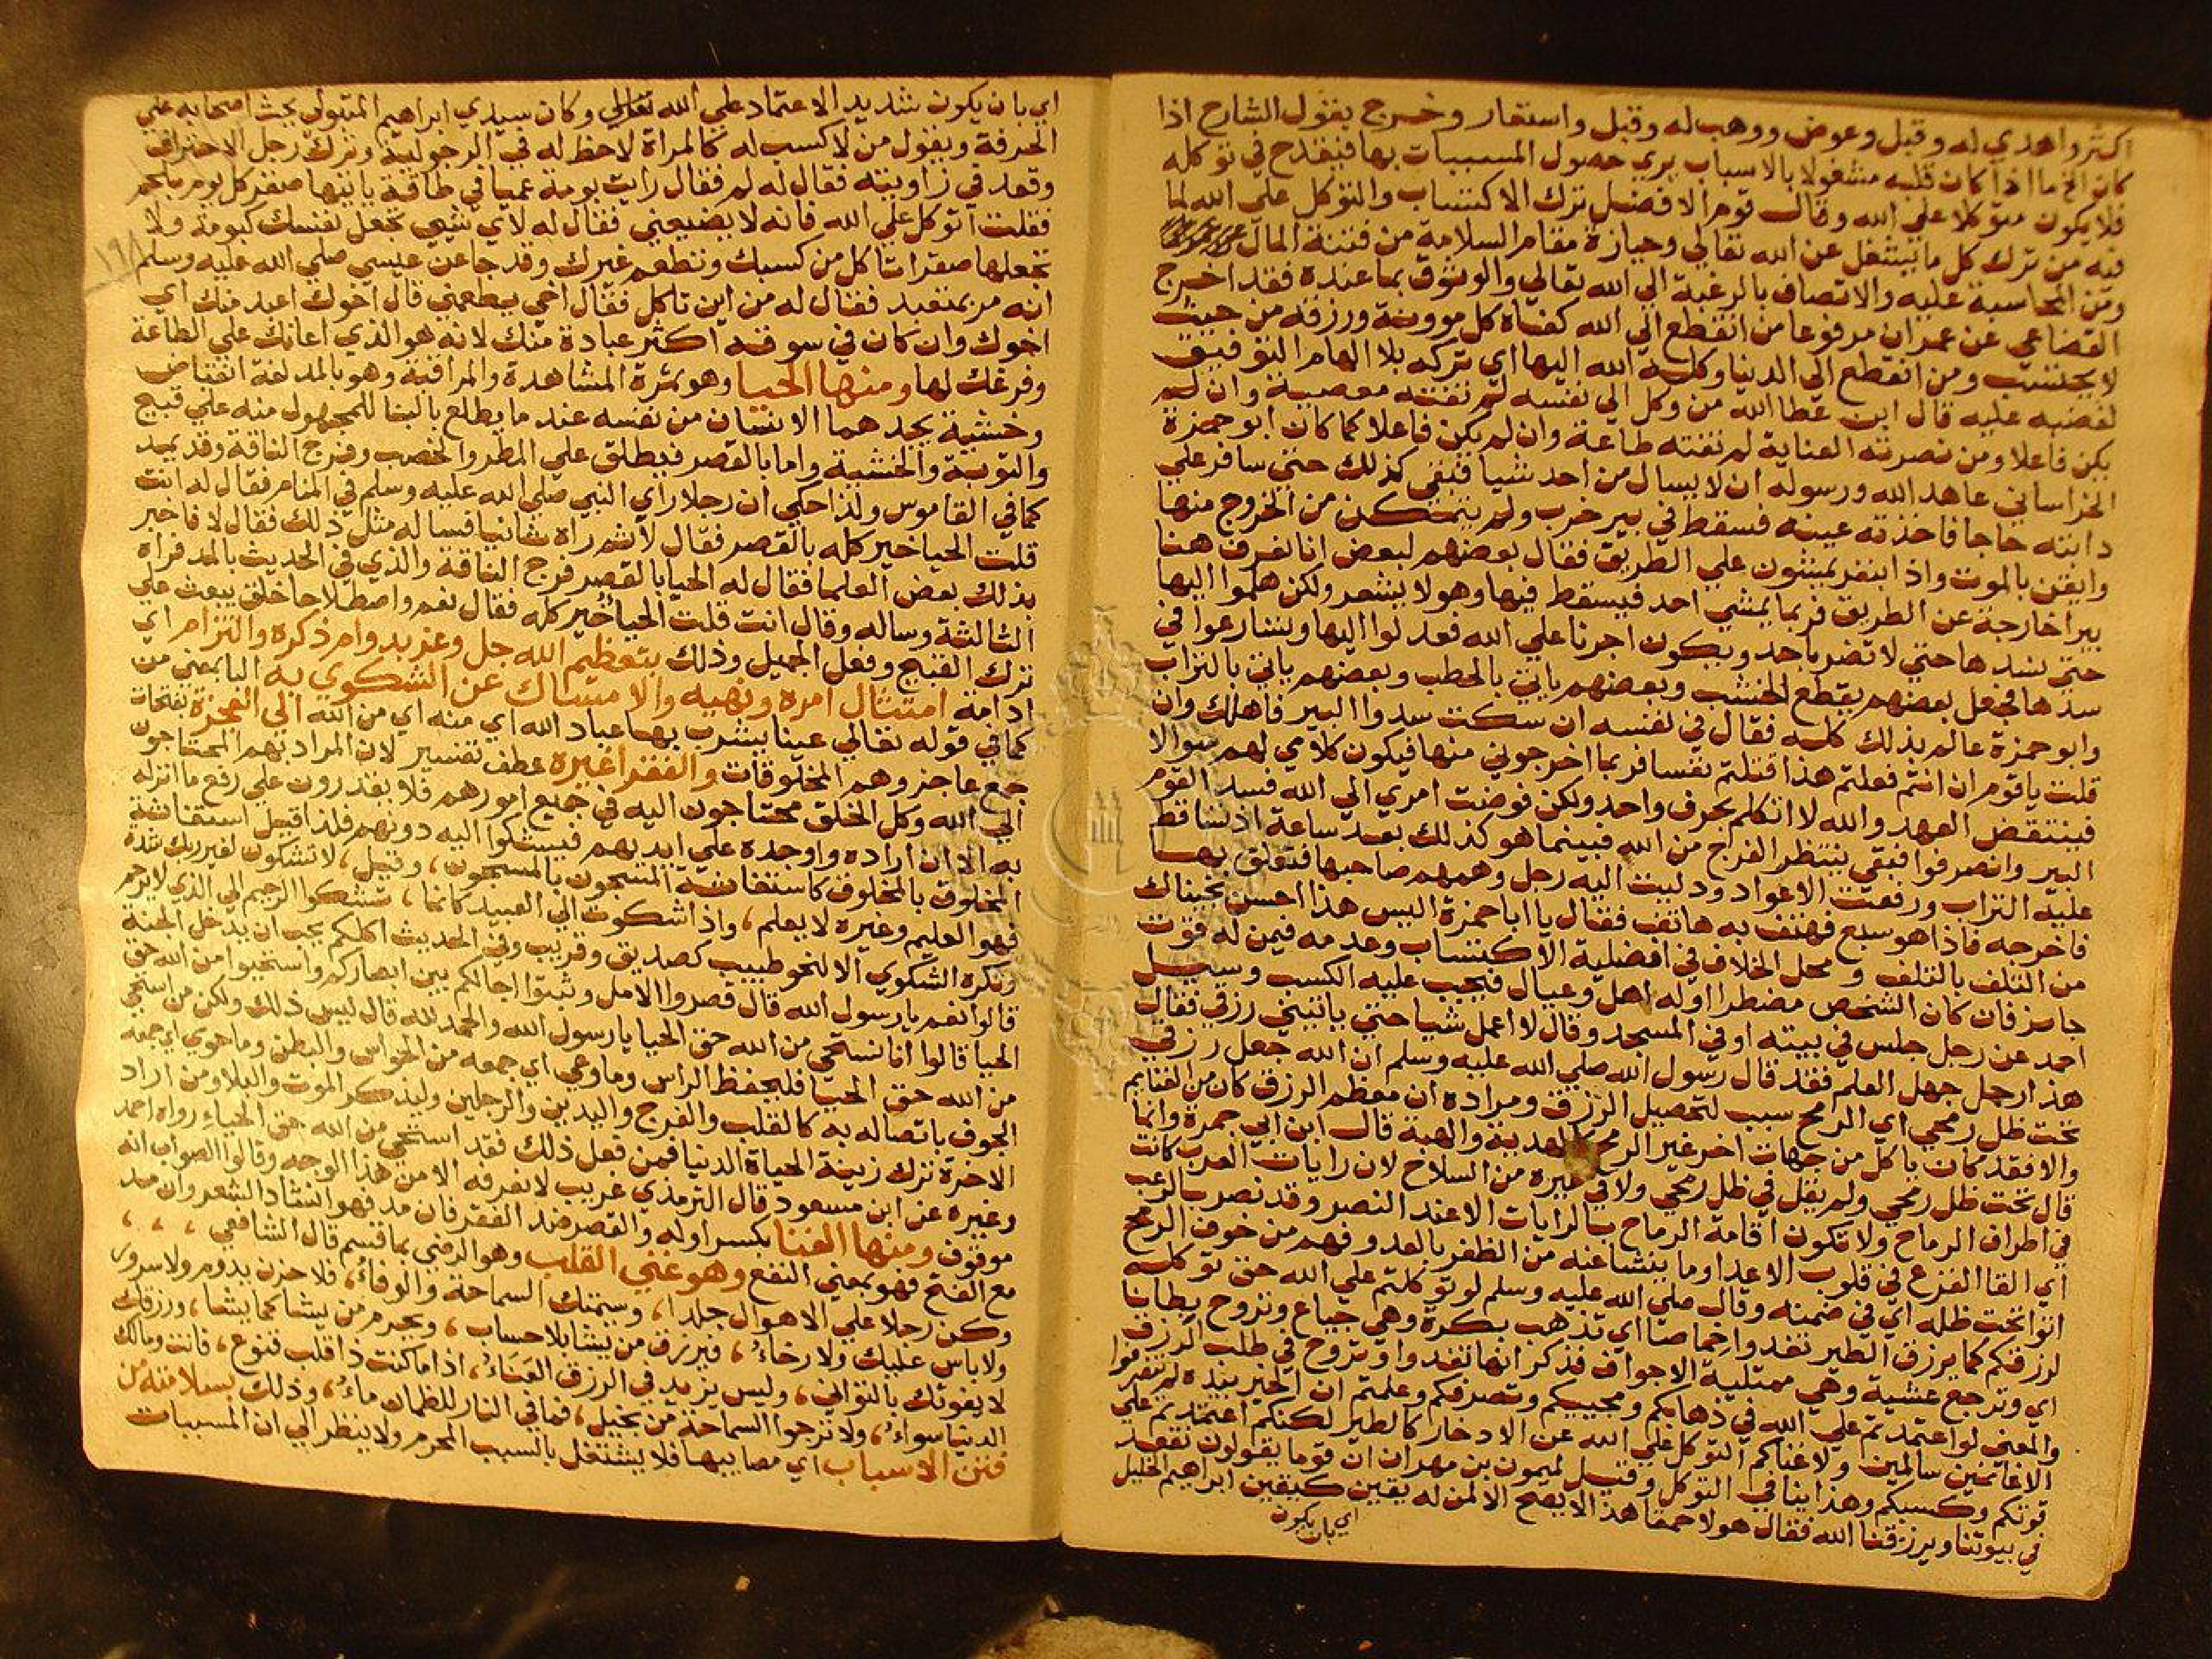 اكثر واهدي له وقبل وعوض ووهب له وقبل واستعار وخرج بقول الشارح اذا
كان الخ ما اذا كان قلبه مشغولا بالاسباب يري حصول المسببات بها فيقدح في توكله
فلا يكون متوكلا علي الله وقال قوم الافضل ترك الاكتساب والتوكل علي الله لما
فيه من ترك كل ما يشغل عن الله تعالي وحيازة مقام السلامة من فتنة المال
ومن المحاسبة عليه والاتصاف بالرغبة الي الله تعالي والوثوق بما عنده فقد اخرج
القضاعي عن عمران مرفوعا من انقطع الي الله كفاه كل موونة ورزقه من حيث
لا يحتسب ومن انقطع الي الدنيا وكله الله اليها اي تركه بلا الهام التوفيق
لغضبه عليه قال ابن عطا الله من وكل الي نفسه لم تفته معصية وان لم
يكن فاعلا ومن نصرته العناية لم تفته طاعة وان لم يكن فاعلا كما كان ابو حمزة
الخراساني عاهد الله ورسوله ان لا يسال من احد شيا فبقي كذلك حتي سافر علي
دابته حاجا فاخذته عينه فسقط في بير خرب ولم يتمكن من الخروج منها
وايقن بالموت واذا بنفر يمشون علي الطريق فقال بعضهم لبعض انا نعرف هنا
بيرا خارجة عن الطريق فربما يمشي احد فيسقط فيها وهو لا يشعر ولكن هلموا اليها
حتي نسدها حتي لا تضر باحد ويكون اجرنا علي الله فعدلوا اليها وتسارعوا في
سدها فجعل بعضهم يقطع الخشب وبعضهم ياتي بالحطب وبعضهم ياتي بالتراب
وابو حمزة عالم بذلك كله فقال في نفسه ان سكت سدوا البير فاهلك وان
قلت يا قوم ان انتم فعلتم هذا قتلتم نفسا فربما اخرجوني منها فيكون كلامي لهم سوالا
فينتقض العهد والله لا اتكلم بحرف واحد ولكن فوضت امري الي الله فسد القوم
البير وانصرفوا فبقي ينتظر الفراج من الله فبينما هو كذلك بعد ساعة اذ تساقط
عليه التراب ورفعت الاعواد ودليت اليه رجل وهمهم صاحبها فتعلق بها
فاخرجه فاذا هو سبع فهتف به هاتف فقال يا ابا حمزة اليس هذا احسن نجيناك
من التلف بالتلف ومحل الخلاف في افضلية الاكتساب وعدمه فيمن له قوت
جاسز فان كان الشخص مضطرا اوله اهل وعيال فيجب عليه الكسب وسيل
احمد عن رجل جلس في بيته او في المسجد وقال لا اعمل شيا حتي ياتيني رزقي فقال
هذا رجل جهل العلم فقد قال رسول الله صلي الله عليه وسلم ان الله جعل رزقي
تحت ظل رمحي اي الرامح سبب لتحصيل الرزق ومراده ان معظم الرزق كان من الغنايم
والا فقد كان ياكل من جهات اخر غير الرمح كالهدية والهبة قال ابن ابي جمرة وانما
قال تحت ظل رمحي ولم يقل في ظل رمحي ولا في غيره من السلاح لان رايات العرب كانت
في اطراف الرماح ولا تكون اقامة الرماح بالرايات الا عند النصر وقد نصر بالرعب
اي القا الفزع في قلوب الاعدا وما ينشا عنه من الظفر بالعدو فهم من خوف الرمح
اتوا تحت ظله اي في ضمنه وقال صلي الله عليه وسلم لو توكلتم علي الله حق توكله
لرزقكم كما يرزق الطير تغدوا خماصا اي تذهب بكرة وهي جياع وتروح بطانا
اي وترجع عشية وهي ممتلية الاجواف فذكر انها تغدوا وتروح في طلب الرزق
والمعني لو اعتمدتم علي الله في ذهابكم ومجيبكم وتصرفكم وعلمتم ان الخير بيده لم تنصرفوا
الا غانمين سالمين ولا غناكم التوكل علي الله عن الادخار كالطير لكنكم اعتمدتم علي
قوتكم وكسبكم وهذا ينافي التوكل وقيل لميمون بن مهران ان قوما يقولون نقعد
في بيوتنا ويرزقنا الله فقال هولا حمقا هذا لا يصح الا لمن له يقين كيقين ابراهيم الخليل
اي بان يكون
اي بان يكون شديد الاعتماد علي الله تعالي وكان سيدي ابراهيم المتبولي يحث اصحابه علي
الحرفة ويقول من لا كسب له كالمراة لا حظ له في الرجولية وترك رجل الاحتراف
وقعد في زاويته فقال له لم فقال رايت بومة عميا في طاقة ياتيها صقر كل يوم بلحم
فقلت اتوكل علي الله فانه لا يضيعني فقال له لاي شي تجعل نفسك كبومة ولا
تجعلها صقرا تاكل من كسبك وتطعم غيرك وقد جا عن عيسي صلي الله عليه وسلم
١٩٨
انه مر بمتعبد فقال له من اين تاكل فقال اخي يطعمني قال اخوك اعبد منك اي
اخوك وان كان في سوقه اكثر عبادة منك لانه هو الذي اعانك علي الطاعة
وفرغك لها ومنها الحيا وهو ثمرة المشاهدة والمراقبة وهو بالمد لغة انقباض
وخشية يجدهما الانسان من نفسه عند ما يطلع بالبنا للمجهول منه علي قبيح
والتوبة والخشية واما بالقصر فيطلق علي المطر والخصب وفرج الناقة وقد يمد
كما في القاموس ولذا حكي ان رجلا راي النبي صلي الله عليه وسلم في المنام فقال له انت
قلت الحيا خير كله بالقصر فقال لا ثم راه ثانيا فساله مثل ذلك فقال لا فاخبر
بذلك بعض العلما فقال له الحيا بالقصر فرج الناقة والذي في الحديث بالمد فراه
الثالثة وساله وقال انت قلت الحياء خير كله فقال نعم واصطلاحا خلق يبعث علي
ترك القبيح وفعل الجميل وذلك بتعظيم الله جل وعز بدوام ذكره والتزام اي
ادامة امتثال امره ونهيه والامساك عن الشكوي به البا بمعني من
كما في قوله تعالي عينا يشرب بها عباد الله اي منه اي من الله الي العجزة بفتحات
جمع عاجز وهم المخلوقات والفقرا غيره عطف تفسير لان المراد بهم المحتاجون
الي الله وكل الخلق محتاجون اليه في جميع امورهم فلا يقدرون علي رفع ما انزله
به الا ان اراده واوجده علي ايديهم فيشكوا اليه دونهم فلذا قيل استغاثة
المخلوق بالمخلوق كاستغاثة المسجون بالمسجون، وقيل، لا تشكون لغير ربك شدة
فهو العليم وغيره لا يعلم، واذا شكوت الي العبيد كانما، تشكوا الرحيم الي الذي لا يرحم
وتكره الشكوي الا لنحو طبيب كصديق وقريب وفي الحديث اكلكم يحب ان يدخل الجنة
قالوا نعم يا رسول الله قال قصروا الامل وثبتوا اجالكم بين ابصاركم واستحيوا من الله حق
الحيا قالوا انا نستحي من الله حق الحيا يا رسول الله والحمد لله قال ليس ذلك ولكن من استحي
من الله حق الحيا فليحفظ الراس وما وعي اي جمعه من الحواس والبطن وما حوي اي جمعه
الجوف باتصاله به كالقلب والفرج واليدين والرجلين وليذكر الموت والبلا ومن اراد
الاخرة ترك زينة الحياة الدنيا فمن فعل ذلك فقد استحي من الله حق الحياء رواه احمد
وغيره عن ابن مسعود قال الترمذي غريب لا نعرفه الا من هذا الوجه وقالوا الصواب انه
موقوف ومنها الغنا بكسر اوله والقصر ضد الفقر فان مد فهو انشاد الشعر وان مد
مع الفتح فهو بمعني النفع وهو غني القلب وهو الرضي بما قسم قال الشافعي ، ، ،
وكن رجلا علي الاهوال جلدا، وسيمتك السماحة والوفاء، فلا حزن يدوم ولا سرور
ولا باس عليك ولا رخاء، فيرزق من يشا بلا حساب، ويحرم من يشا كما يشا، ورزقك
لا يفوتك بالتواني، وليس يزيد في الرزق العناء، اذا ما كنت ذا قلب قنوع، فانت ومالك
الدنيا سواء، ولا ترجوا السماحة من بخيل، فما في النار للظمان ماء، وذلك بسلامته من
فتن الاسباب اي مصايبها فلا يشتغل بالسبب المحرم ولا ينظر الي ان المسببات